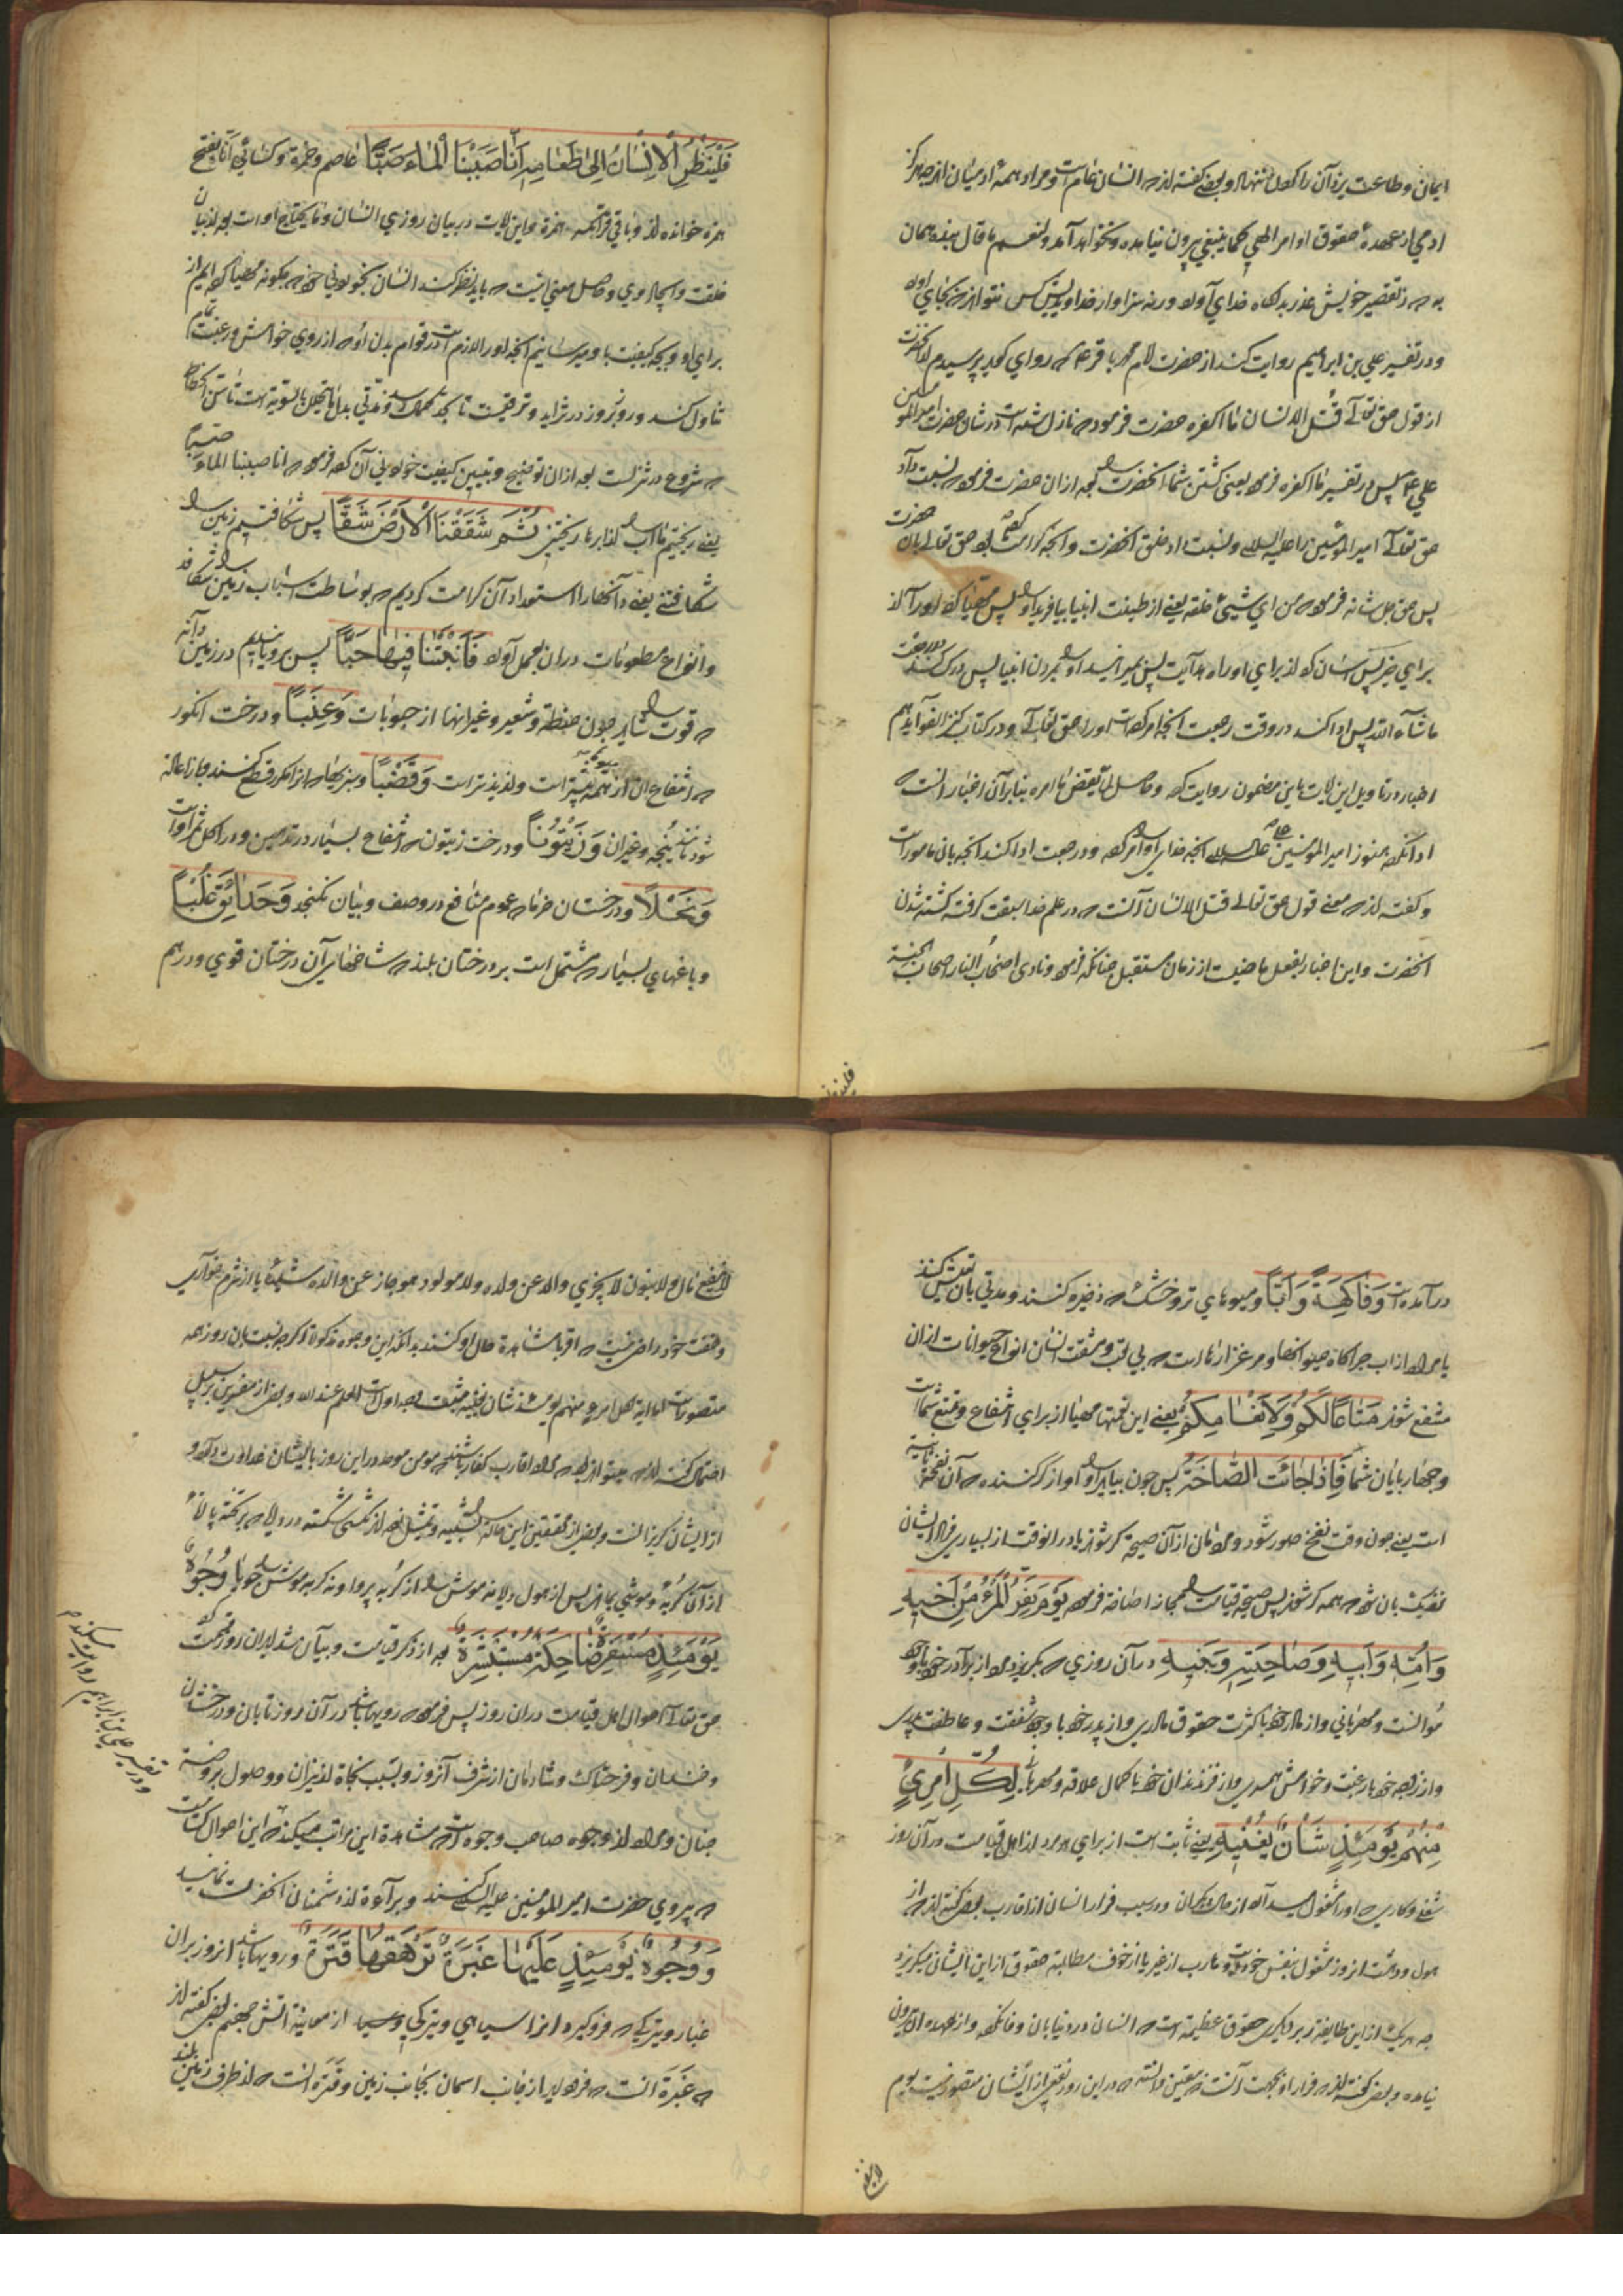 ایمان و طاعت یزدان را و بعضی گفته‌اند که انسان عام است و مراد همه آدمیان اند چه هرگز
ادمی از عهده حقوق اوامر الهی کما ینبغی بیرون نیامده و نخواهد آمد و لنعم ما قال بنده همان
به که ز تقصیر خویش عذر بدرگاه خدای آورد ورنه سزاوار خداوندیش کس نتواند که بجای آورد
و در تفسیر علی بن ابراهیم روایت کند از حضرت امام محمد باقر ع که راوی گوید پرسیدم از آنحضرت
از قول حق تعالی قُتل الانسان ما اکفره حضرت فرمود که نازل شده است در شان حضرت امیر المومنین
علی ع پس در تفسیر ما اکفره فرمود یعنی کشتن شما آنحضرت بعد ازان حضرت فرمود نسبت داد
حق تعالی امیر المؤمنین را علیه السلام و نسبت داد خلق آنحضرت و آنچه
پس حق جل شانه فرمود من ای شیئ خلقه یعنی از طینت انبیا بیافرید او را پس مهیا
برای خیر پس آسان کرد از برای او راه هدایت پس بمیرانید او را بمردن انبیا پس
ما شآء الله پس ادا کند در وقت رجعت آنچه امر کرده است او را حق تعالی و در کتاب کنز الفوائد هم
اخبار در تاویل این ایات باین مضمون روایت کرده و حاصل لما یقض ما امره بنابر آن اخبار آنست که
ادا نکرده هنوز امیر المؤمنین علیه السلام آنچه خدای او را امر کرده و در رجعت ادا کند آنچه بان مامور است
و گفته‌اند که معنی قول حق تعالی قتل الانسان آنست که در علم خدا سبقت گرفته کشته شدن
آنحضرت و این اخبار بفعل ماضیست از زمان مستقبل چنانکه فرموده و نادی اصحاب النار اصحاب الجنة
فلینظر
فَلْیَنْظُرِ الْاِنْسَانُ اِلیٰ طَعَامِهِ اَنَّا صَبَبْنَا الْمَاءَ صَبًّا عاصم و حمزة و کسائی انّا بفتح
همزه خوانده‌اند و باقی قرا بکسر همزة و این ایات در بیان روزی انسان و ما یحتاج او است بعد از بیان
خلقت و ایجاد وی و حاصل معنی اینست که باید نظر کند انسان
برای او و بچه کیفیت باو میرسانیم آنچه او را لازم است در قوام بدن او که از روی خواهش و رغبت تمام
تناول کند و روز بروز در تزاید و ترقیست تا بحد
که شروع در تنزلست بعد ازان توضیح و تبیین کیفیت خوردنی آن کرده فرموده که انا صببنا الماء صَبًّا
یعنی ریختیم ما آب را از ابرها ریختنی ثُمَّ شَقَقْنَا الْاَرْضَ شَقًّا پس شکافتیم زمین را
شکافتنی یعنی دانها را استعداد آن کرامت کردیم که بوساطت اسباب زمین را شکافد
و انواع مطعومات دران بعمل آورد فَاَنْبَتْنَا فِیهَا حَبًّا پس برویانیدیم در زمین دانه
که قوت را شاید چون حنطة و شعیر و غیر انها از حبوبات وَعِنَبًا و درخت انگور
که انتفاع ان از همه میوه بیشتر است و لذیذتر است وَقَضْبًا و سبزیها که انرا مکرر قطع کنند و باز اعاده
شود و غیر ان وَزَیْتُونًا و درخت زیتون که انتفاع بسیار در و در اکل ثمر او است
وَنَخْلًا و درختان خرما که عموم منافع در وصف و بیان نگنجد وَحَدَائِقَ غُلْبًا
و باغهای بسیار که مشتمل است بر درختان بلند که شاخهای آن درختان قوی و در هم
درآمده است وَفَاکِهَةً وَاَبًّا و میوه‌های تر و خشک که ذخیره کنند و مدتی بان تعیش کنند
یا مراد از اب چراگاه حیوانها و مرغزارها است که بی تعب و مشقت انسان انواع حیوانات ازان
منتفع شوند مَتَاعًا لَکُمْ وَلِاَنْعَامِکُمْ یعنی این نعمتها مهیا از برای انتفاع و تمتع شما است
و چهارپایان شما فَاِذَا جَائَتِ الصَّاخَّةُ پس چون بیاید آواز کر کننده که آن نفخه ثانیه
است یعنی چون وقت نفخ صور شود و مردمان از آن صیحة کر شوند یا در انوقت از بسیاری
نزدیک بان شود که همه کر شوند پس صیحه قیامت را مجازا صاخة فرموده یَوْمَ یَفِرُّ الْمَرْءُ مِنْ اَخِیهِ
وَاُمِّهِ وَاَبِیهِ وَصَاحِبَتِهِ وَبَنِیهِ در آن روزی که بگریزد مرد از برادر خود با وجود
موانست و مهربانی و از مادر خود با کثرت حقوق مادری و از پدر خود با وجود شفقت و عاطفت پدری
و از زوجه خود با رغبت و خواهش همسری و از فرزندان خود با کمال علاقه و مهربانی لِکُلِّ امْرِئٍ
مِنْهُمْ یَوْمَئِذٍ شَاْنٌ یُغْنِیهِ یعنی ثابت است از برای هر مرد از اهل قیامت در آن روز
شغلی و کاری که او را مشغول میسازد از حال دیگران و در سبب فرار انسان از اقارب بعضی گفته‌اند که از
هول و دهشت انروز مشغول بنفس خود است و هارب از غیر یا از خوف مطالبه حقوق از این ایشان میگریزد
چه هریک از این طایفه را بر دیگری حقوق عظیمه است که انسان در دنیا بان وفا نکرده و از عهده ان بیرون
نیامده و بعضی گفته‌اند که فرار او بجهت آنست که یقین دانسته که در این روز نفعی از ایشان متصور نیست یوم
لا ینفع
لا ینفع مال و لا بنون لا یجزی والد عن ولده و لا مولود هو جاز عن والده شیئا یا از شرم خواری
و خفت خود راضی نیست که اقربا مشاهدة حال او کنند بدانکه این وجوه مذکوره اگرچه نسبت بان روز همه
متصور است اما ایه لکل امرئ منهم یومئذ شان یغنیه مثبت وجه اول است و العلم عند الله و بعضی از مفسرین بر سبیل
احتمال گفته‌اند که میتواند بود که مراد اقارب کفار باشند چه مومن موحد در این روز با ایشان عداوت دارد و
از ایشان گریزانست و بعضی از محققین این حالة را تشبیه و تمثیل کرده‌اند بکشتی شکسته در دریا که بر تخته پاره
از آن گربه و موشی بمانند پس از هول دریا نه موش را از گربه پروا و نه گربه موش را جویا وُجُوهٌ
یَوْمَئِذٍ مُسْفِرَةٌ ضَاحِکَةٌ مُسْتَبْشِرَةٌ بعد از ذکر قیامت و بیان شداید ان روز
حق تعالی احوال اهل قیامت دران روز پس فرموده که رویها باشد در آن روز تابان و درخشان
و خندان و فرحناک و شادمان از شرف آنروز و بسبب نجاة از نیران و وصول بروضه
جنان و مراد از وجوه صاحب وجوه است که مشاهدة این مراتب میکنند و این احوال کسانیست
که پیروی حضرت امیر المومنین علیه السلام کنند و برآءة از دشمنان آنحضرت نمایند
وَوُجُوهٌ یَوْمَئِذٍ عَلَیْهَا غَبَرَةٌ تَرْهَقُهَا قَتَرَةٌ و رویها باشد انروز بران
غبار و تیرگی که فروگیرد انرا سیاهی و تیرگی از معاینة اتش جهنم بعضی گفته‌اند
که غَبَرَة انست که فرود اید از جانب اسمان بجانب زمین و قترة انست که از طرف زمین بلند
و در تفسیر علی بن ابراهیم روایت میکند که